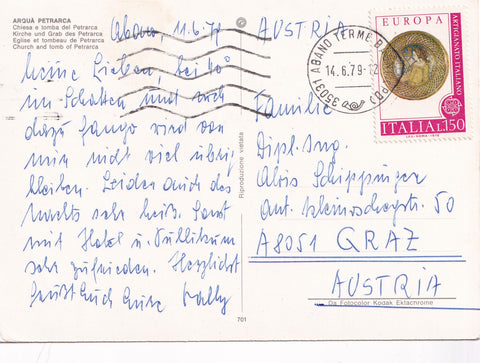 ARQUÀ PETRARCA
Chiesa e tomba del Petrarca
Kirche und Grab des Petrarca
Eglise et tombeau de Petrarca
Church and tomb of Petrarca
Abano, 11.6.79
Meine Lieben, bei 40°
im Schatten und noch
dazu Fango wird von
mir nicht viel übrig
bleiben. Leider auch des
Nachts sehr heiß. Sonst
mit Hotel u. Publikum
sehr zufrieden. Herzlichst
grüßt Euch Eure
Riproduzione vietata
701
AUSTRIA
Familie
Dipl. Ing.
Alois Schippinger
Ant. Kleinoschegstr. 50
A8051 GRAZ
AUSTRIA
Da Fotocolor Kodak Ektachrome
35031 ABANO TERME (PD)
14.6.79-12
EUROPA
ARTIGIANATO ITALIANO
ITALIA L.150